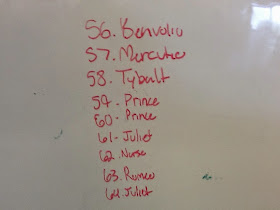 56. Benvolio
57. Mercutio
58. Tybalt
59. Prince
60. Prince
61. Juliet
62. Nurse
63. Romeo
64. Juliet